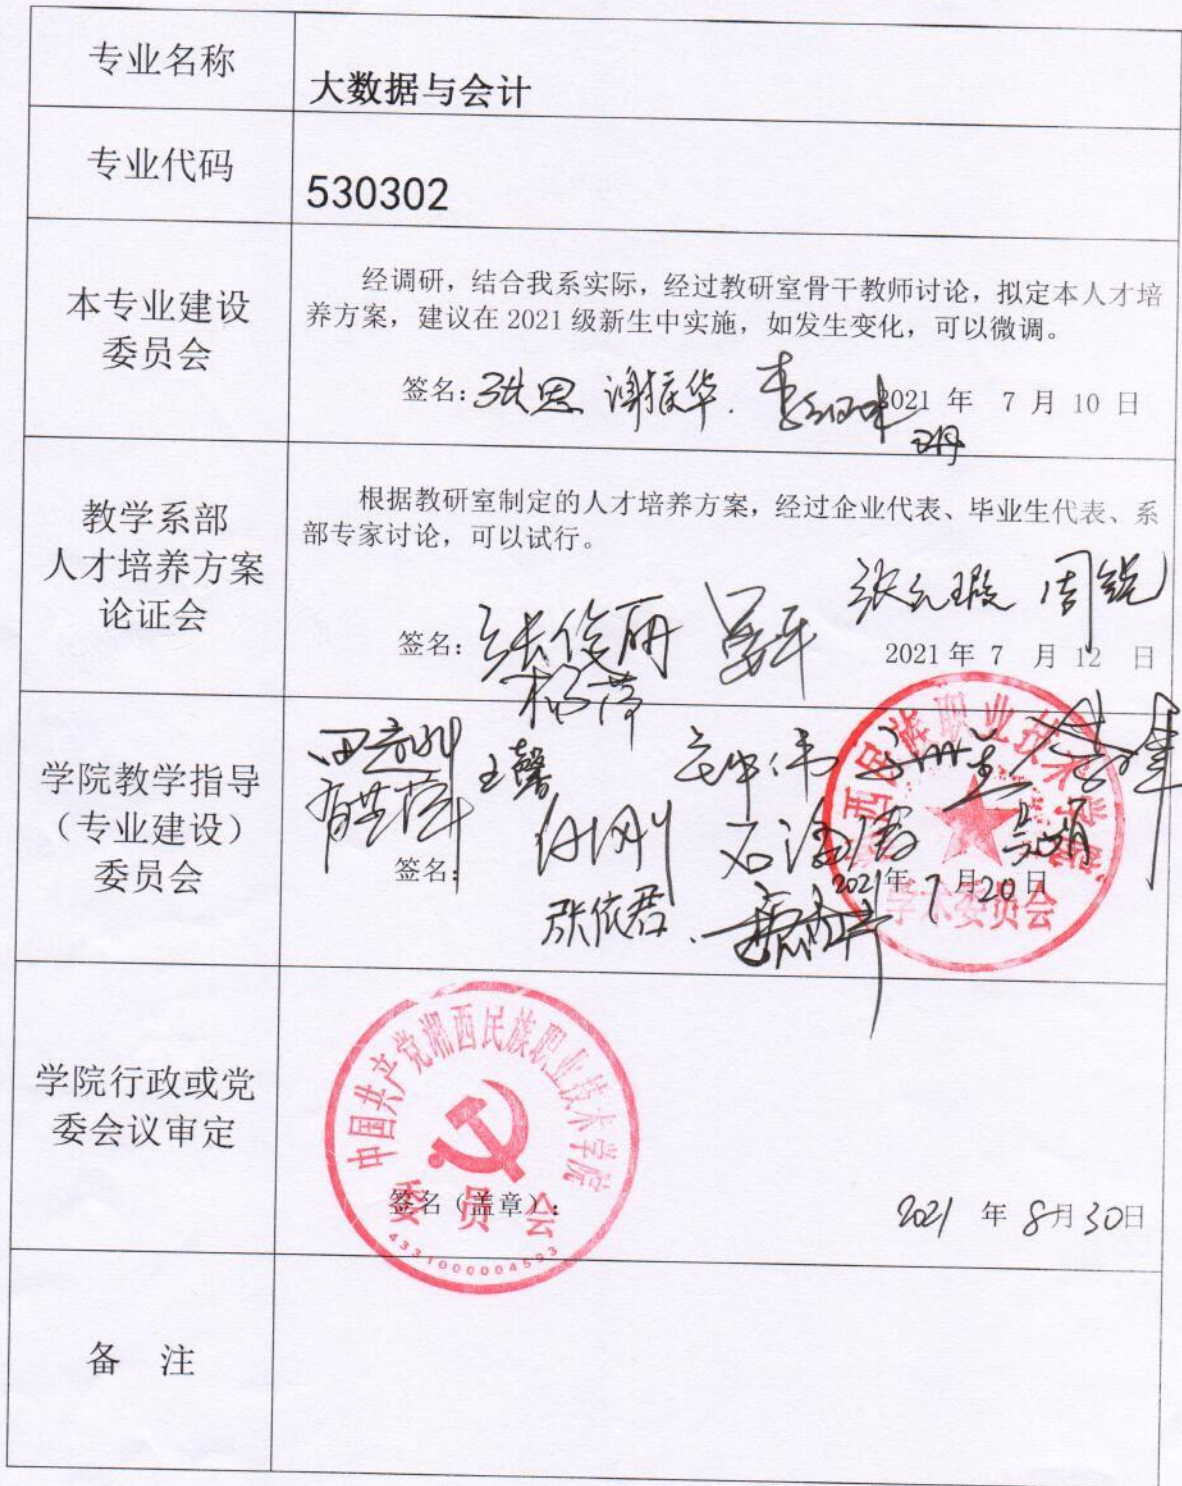 专业名称
大数据与会计
专业代码
530302
本专业建设
委员会
经调研，结合我系实际，经过教研室骨干教师讨论，拟定本人才培
养方案，建议在 2021 级新生中实施，如发生变化，可以微调。
签名: 张思 谢振华. 2021 年 7 月 10 日
教学系部
人才培养方案
论证会
根据教研室制定的人才培养方案，经过企业代表、毕业生代表、系
部专家讨论，可以试行。
周锐
签名: 张俊丽 2021 年 7 月 12 日
杨萍
学院教学指导
（专业建设）
委员会
王馨
签名: 付刚 2021 年 7 月 20 日
张依君
学术委员会
学院行政或党
委会议审定
中国共产党湘西民族职业技术学院
委员会
4331000004593
签名（盖章）: 2021 年 8月 30日
备 注